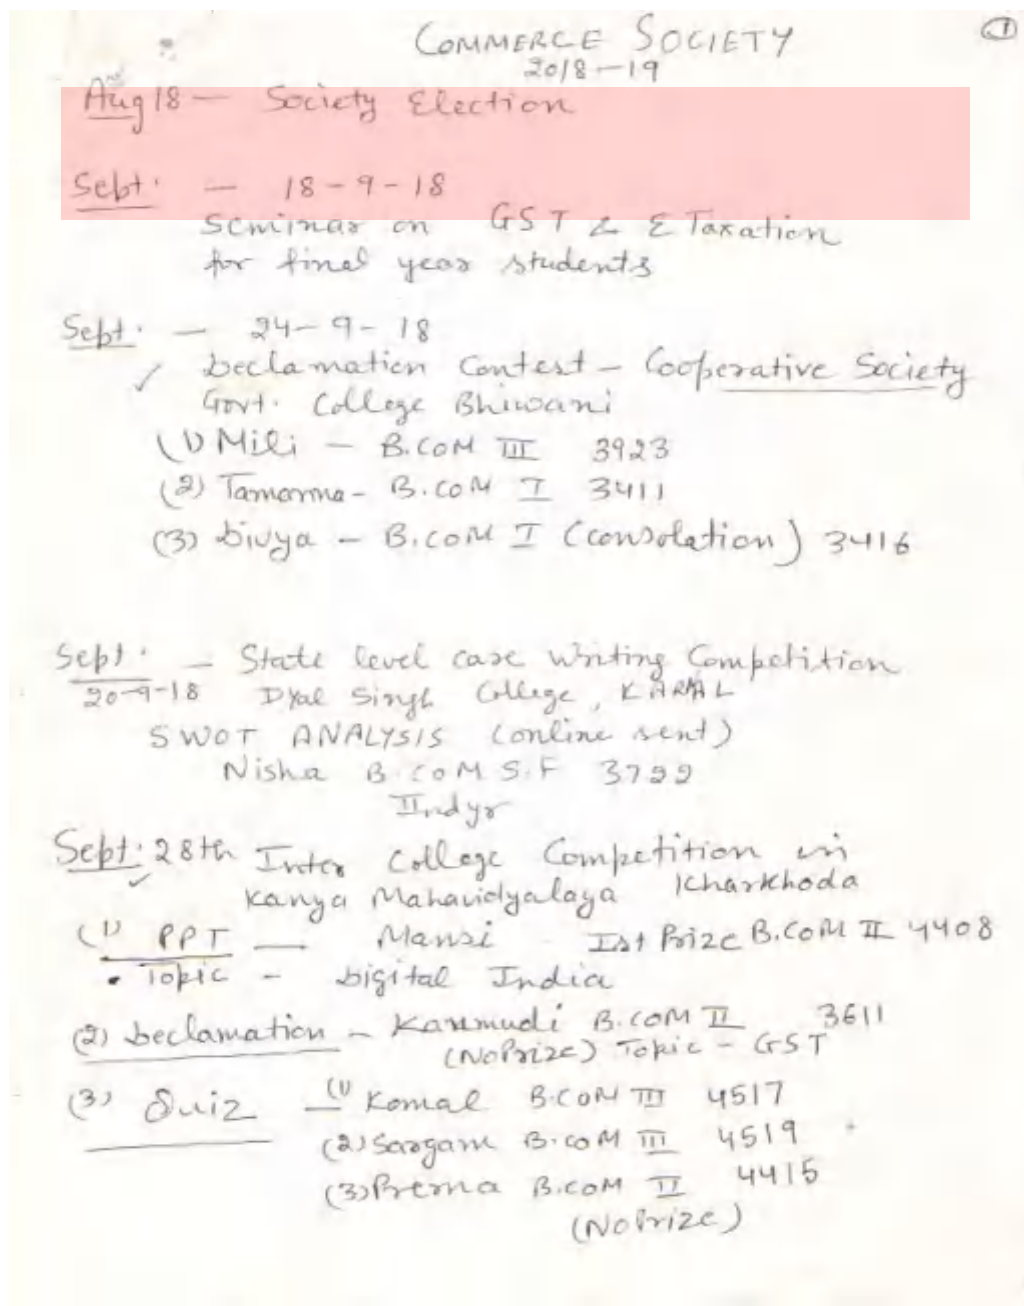 COMMERCE SOCIETY ①
2018-19
Aug 18 - Society Election
Sept. - 18-9-18
Seminar on GST & E Taxation
for final year students
Sept. - 24-9-18
✓ Declamation Contest - Cooperative Society
Govt. College Bhiwani
(1) Mili - B.COM III 3923
(2) Tamanna - B.COM I 3411
(3) Divya - B.COM I (consolation) 3416
Sept. - State level case Writing Competition
20-9-18 Dyal Singh College, KARNAL
SWOT ANALYSIS (online sent)
Nisha B.COM S.F 3722
IInd yr
Sept. 28th Inter College Competition in
✓ Kanya Mahavidyalaya Kharkhoda
(1) PPT - Mansi - Ist Prize B.COM II 4408
• Topic - Digital India
(2) Declamation - Kaumudi B.COM II 3611
(No Prize) Topic - GST
(3) Quiz - (1) Komal B.COM III 4517
(2) Sargam B.COM III 4519
(3) Prerna B.COM II 4415
(No Prize)